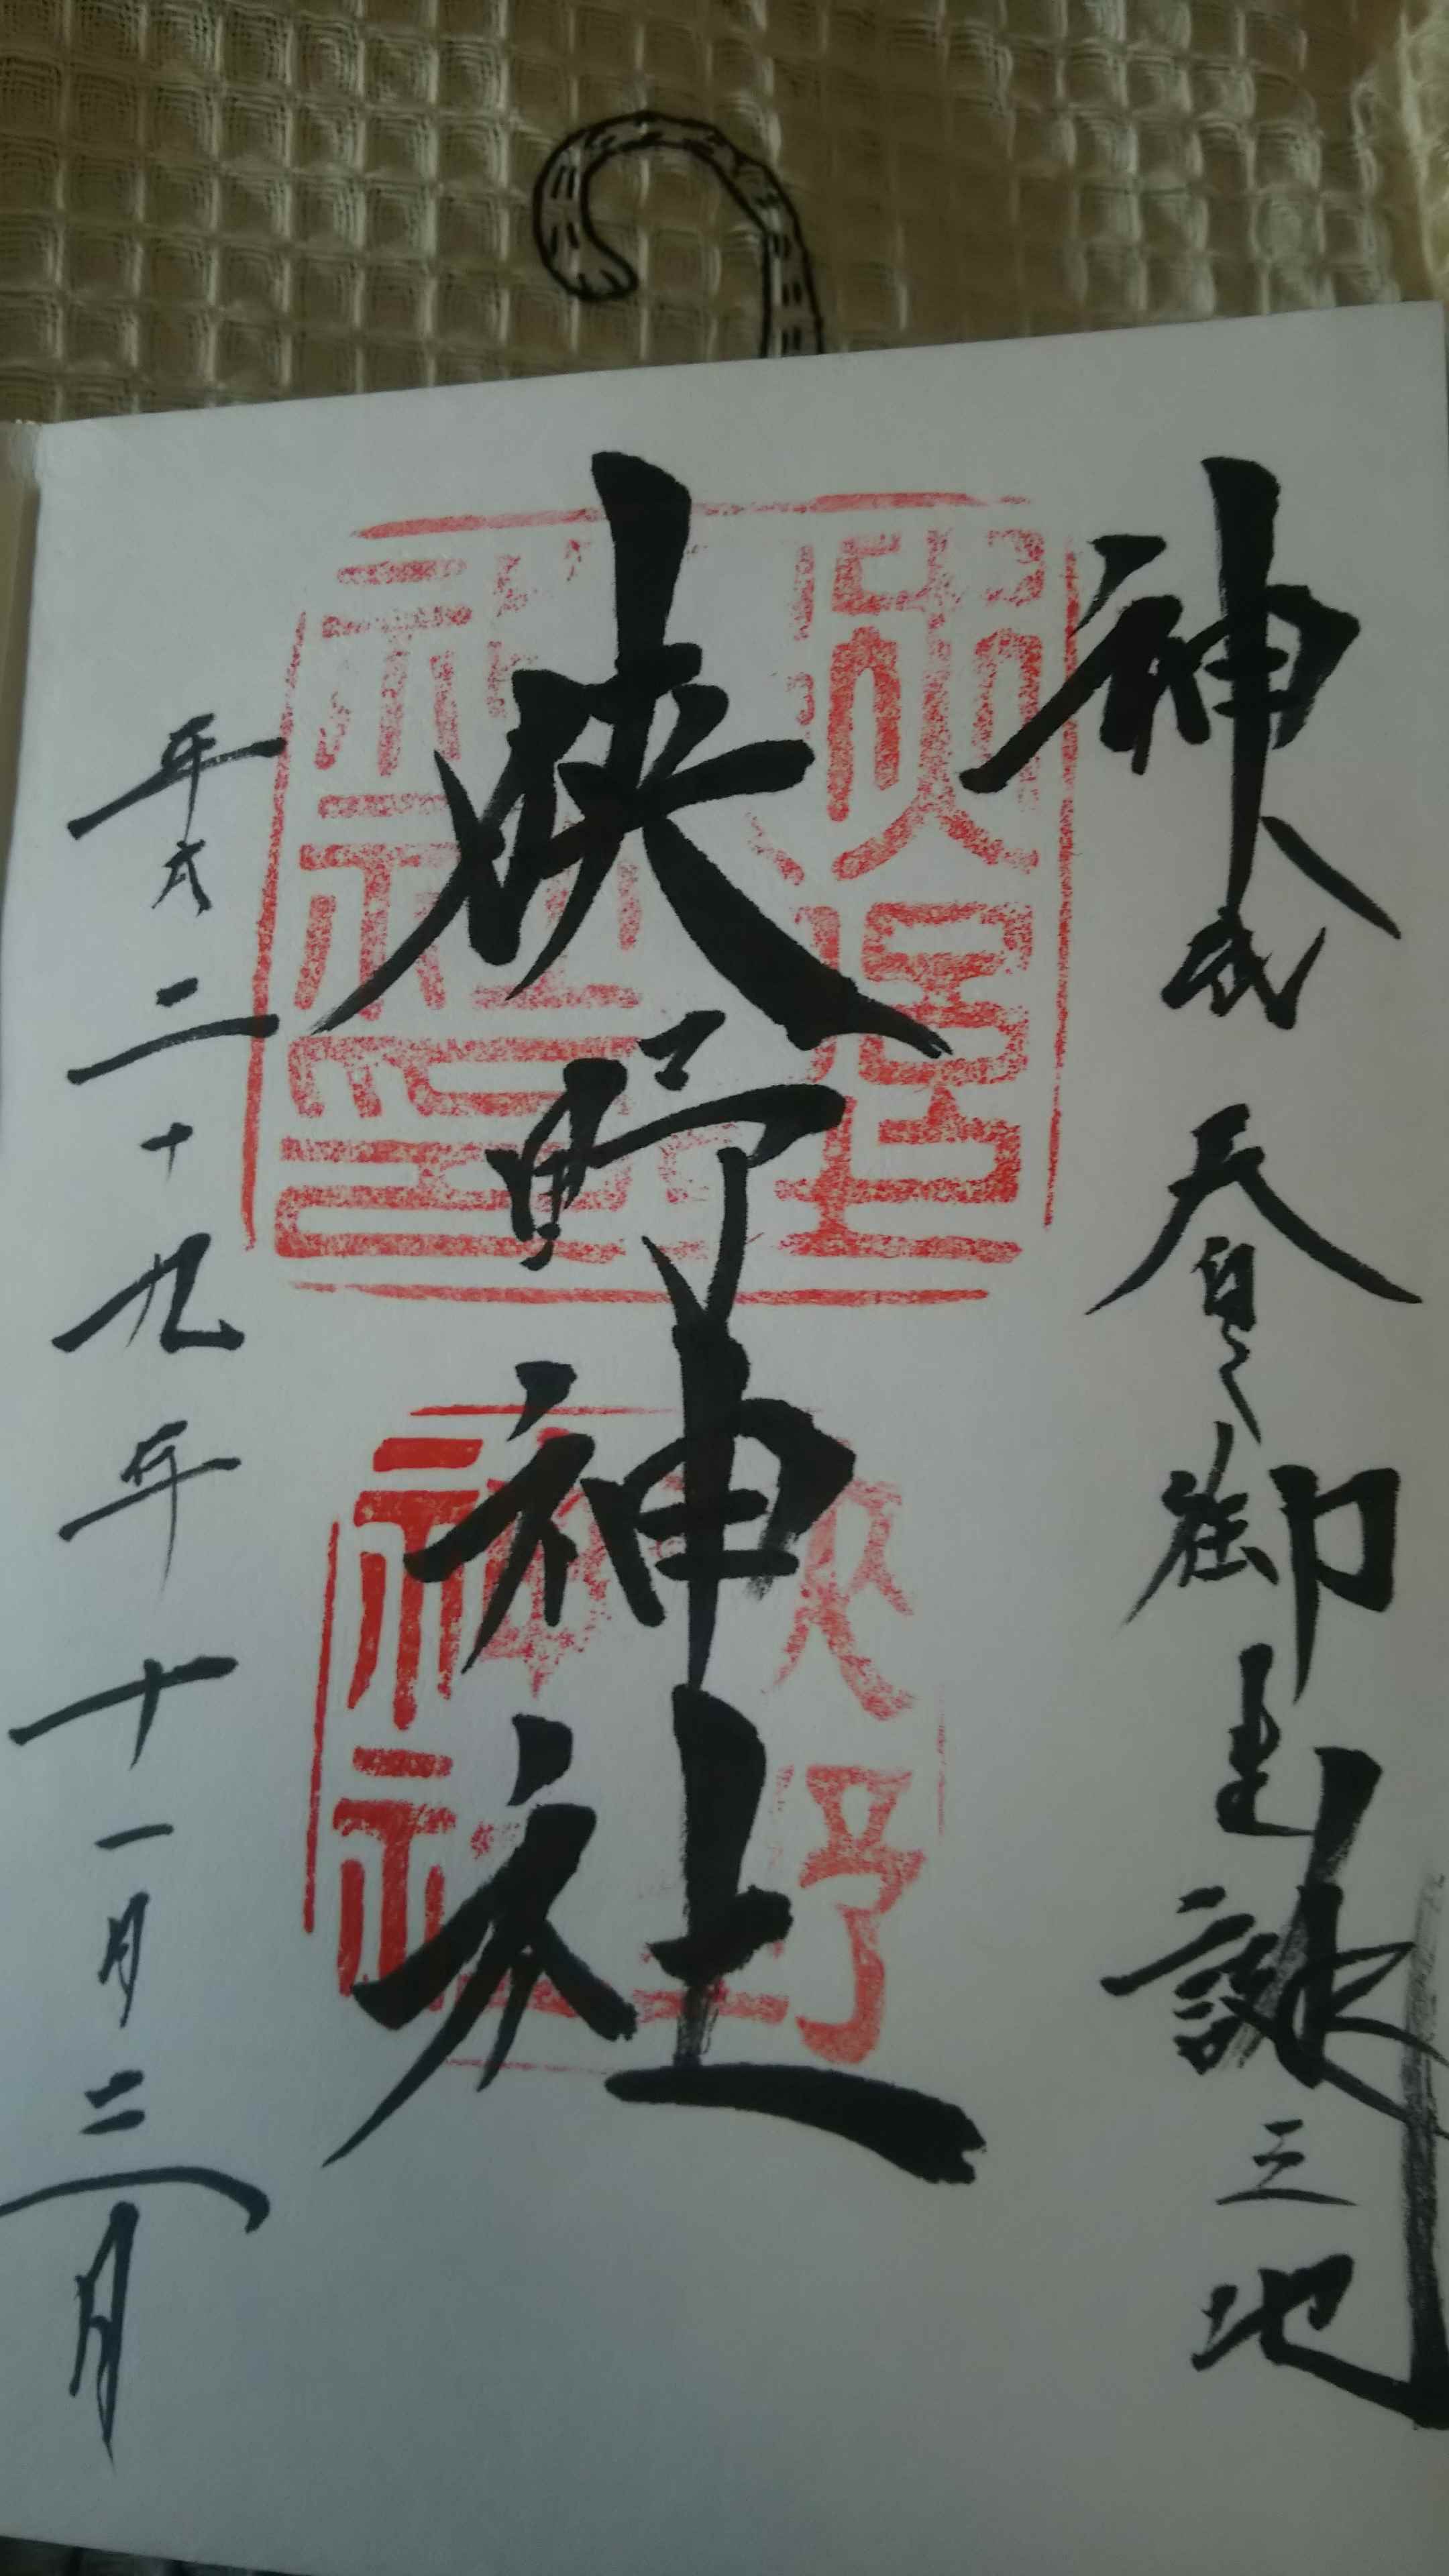 神武天皇御生誕之地
狭野神社
平成二十九年十一月三日
狭野
神社